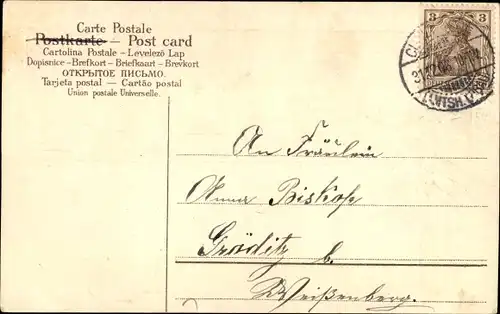 Carte Postale
Postkarte — Post card
Cartolina Postale – Levelező Lap
Dopisnice – Brefkort – Briefkaart – Brevkort
ОТКРЫТОЕ ПИСЬМО.
Tarjeta postal – Cartão postal
Union postale Universelle.
3 3
An Fräulein
Anna Biskop
Gröditz b.
Weißenberg.